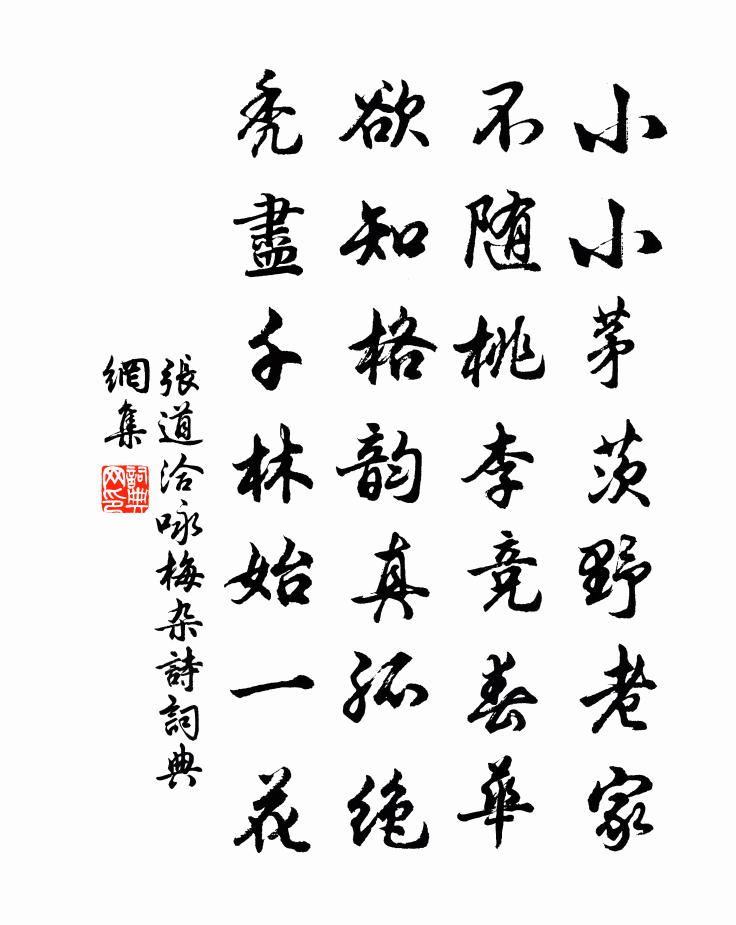 小小茅茨野老家
不随桃李竞春華
欲知格韵真孤绝
秃盡千林始一花
張道洽咏梅杂詩詞典
網集
詞典
网印